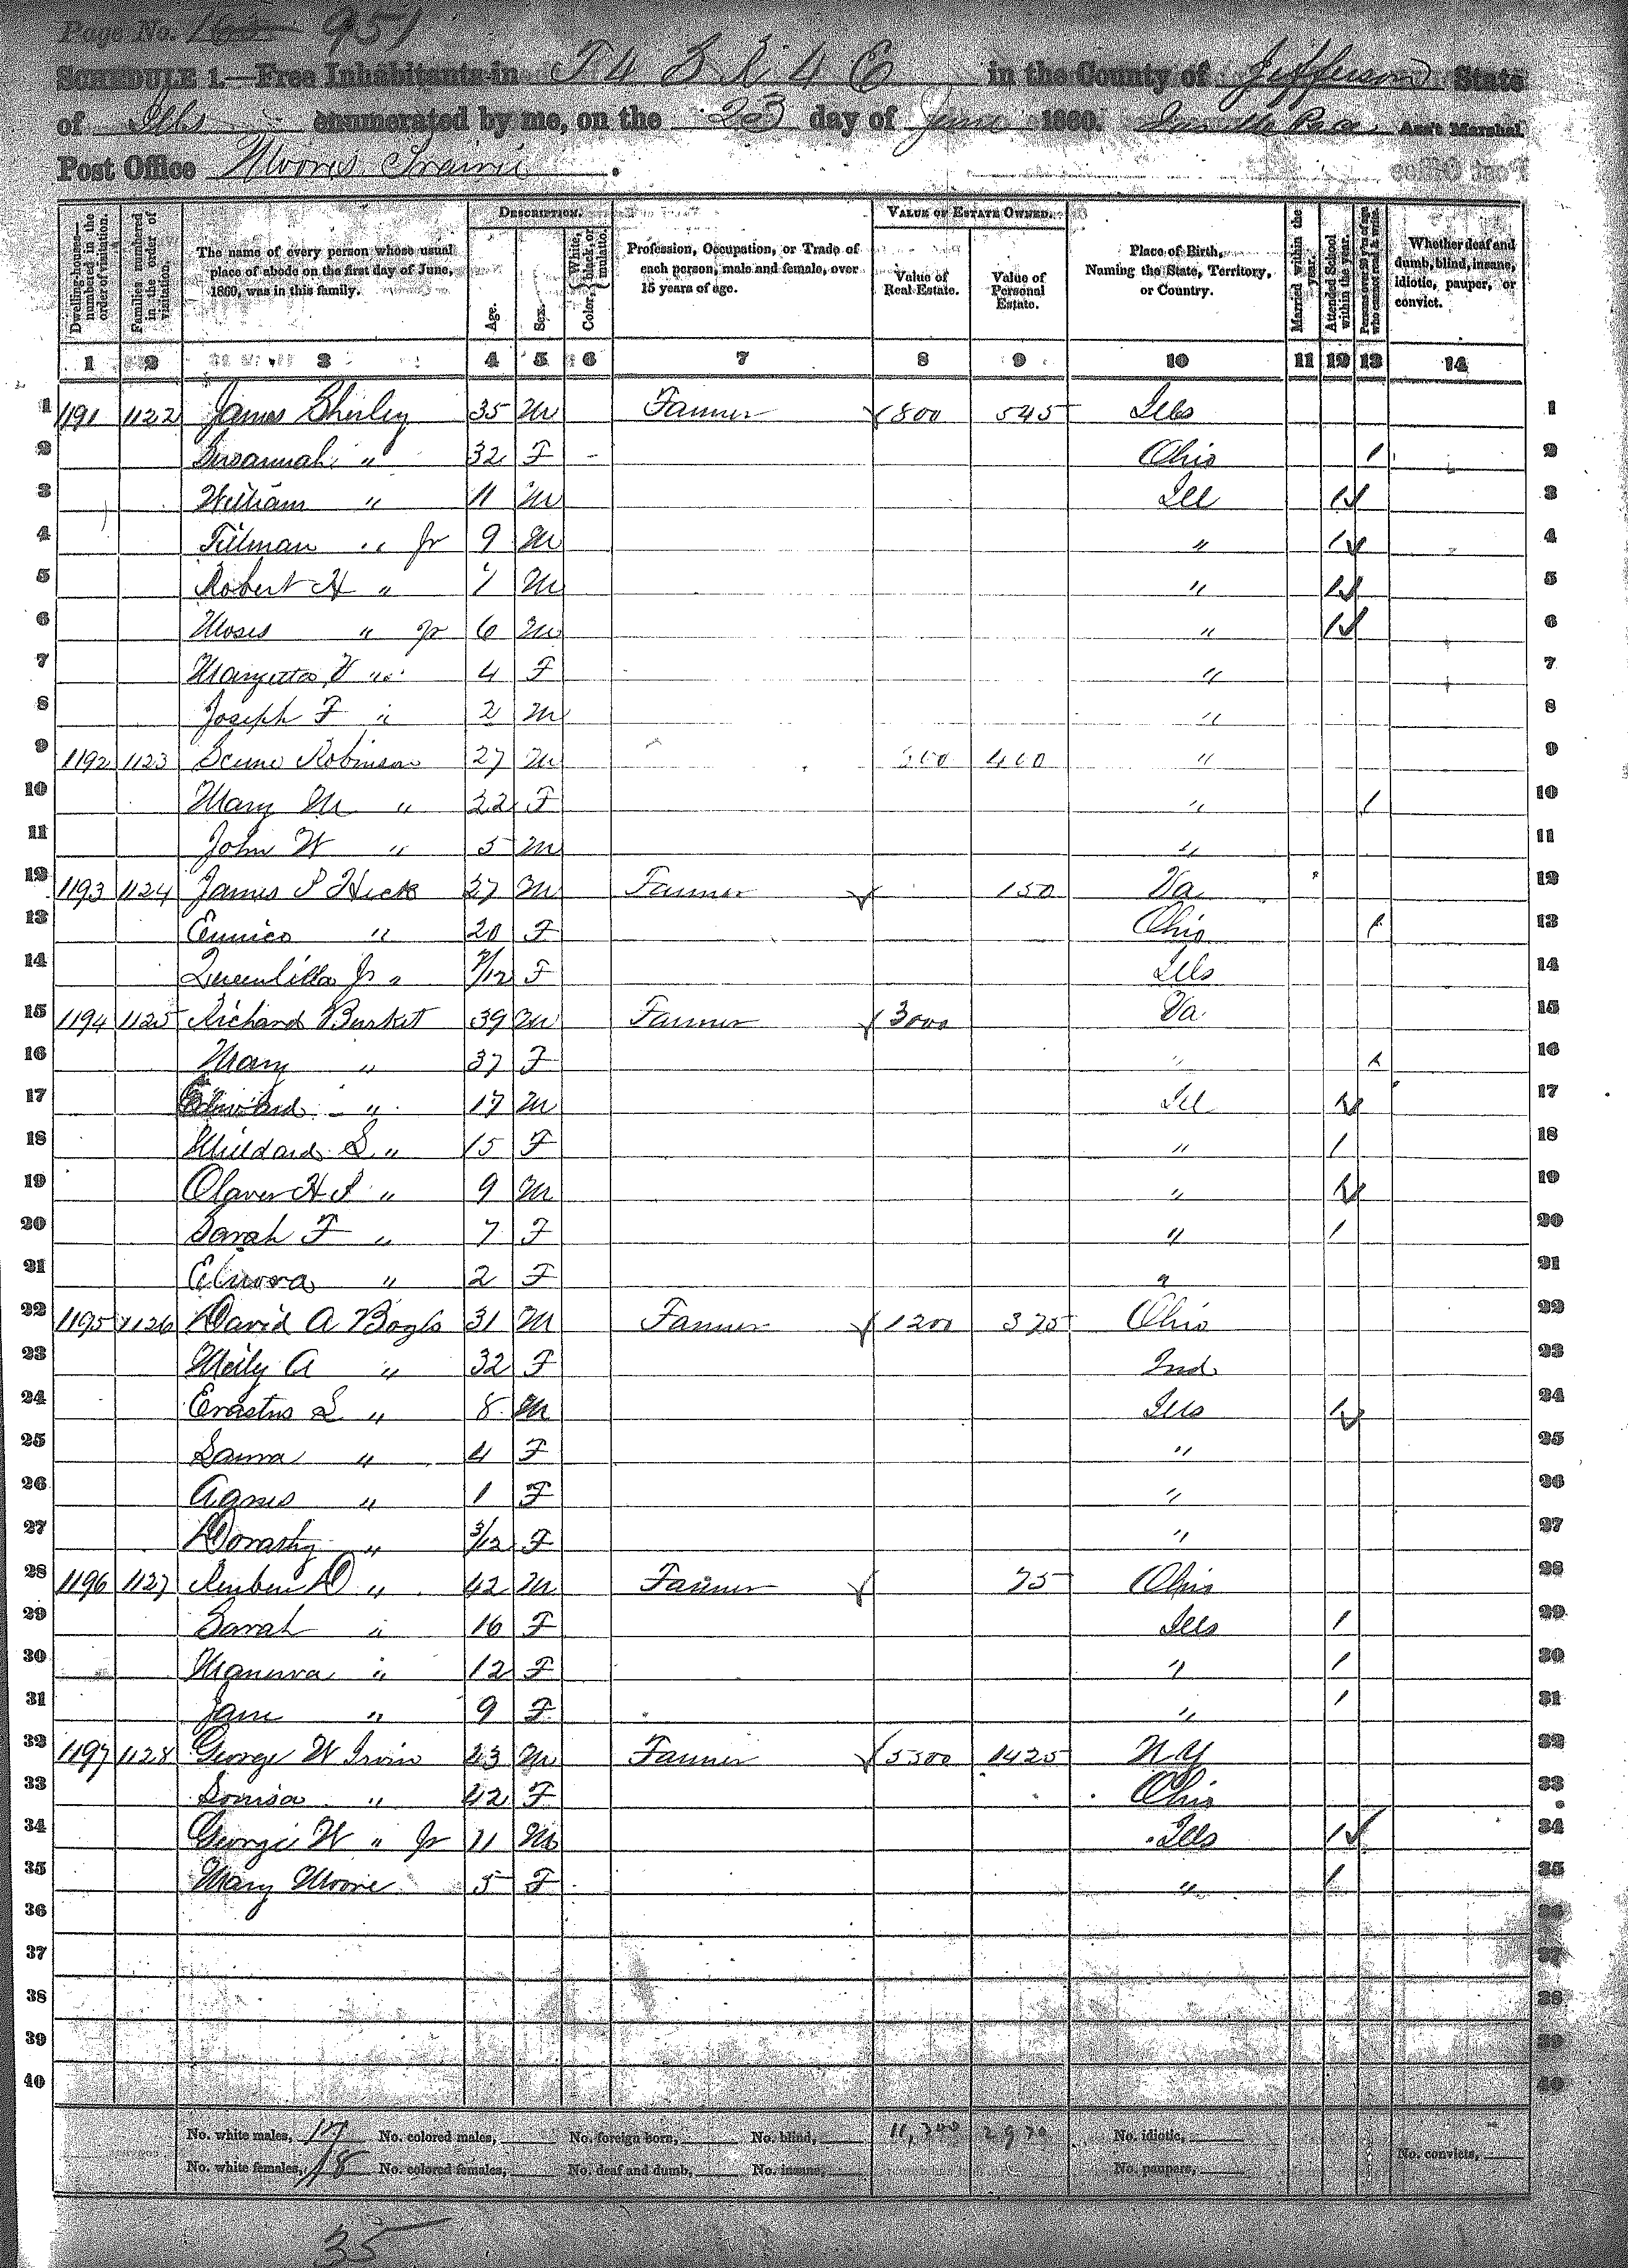 Page No. 165 951
SCHEDULE 1.—Free Inhabitants in T 4 S R 4 E in the County of Jefferson State
of Ills enumerated by me, on the 23 day of June 1860. Pace Ass't Marshal.
Post Office Moores Prairie.
Dwelling-houses—numbered in the order of visitation.
Families numbered in the order of visitation.
The name of every person whose usual place of abode on the first day of June, 1860, was in this family.
DESCRIPTION.
Age.
Sex.
Color, { White, black, or mulatto.
Profession, Occupation, or Trade of each person, male and female, over 15 years of age.
VALUE OF ESTATE OWNED.
Value of Real Estate.
Value of Personal Estate.
Place of Birth, Naming the State, Territory, or Country.
Married within the year.
Attended School within the year.
Persons over 20 y'rs of age who cannot read & write.
Whether deaf and dumb, blind, insane, idiotic, pauper, or convict.
1 2 3 4 5 6 7 8 9 10 11 12 13 14
1 1191 1122 James Shirley 35 M Farmer 800 545 Ills 1
2 Susannah " 32 F - Ohio 1 2
3 William " 11 M Ill 1 3
4 Tillman " Jr 9 M " 1 4
5 Robert H " 7 M " 1 5
6 Moses " Jr 6 M " 1 6
7 " 4 F " 7
8 Joseph F " 2 M " 8
9 1192 1123 Robinson 27 M 400 " 9
10 Mary M " 22 F " 1 10
11 John W " 5 M " 11
12 1193 1124 James P Hicks 27 M Farmer 150 Va 12
13 Eunice " 20 F Ohio 1 13
14 /12 F Ills 14
15 1194 1125 Richard Burket 39 M Farmer 3000 Va 15
16 Mary " 37 F " 1 16
17 Edward " 17 M Ill 1 17
18 " 15 F " 1 18
19 Olaver H P " 9 M " 1 19
20 Sarah F " 7 F " 1 20
21 " 2 F " 21
22 1195 1126 David A Bogls 31 M Farmer 1200 375 Ohio 22
23 Meily A " 32 F Ind 23
24 Erastus L " 8 M Ills 1 24
25 Laura " 4 F " 25
26 Agnes " 1 F " 26
27 Dorasthy " 3/12 F " 27
28 1196 1127 Reuben D " 42 M Farmer 75 Ohio 28
29 Sarah " 16 F Ills 1 29
30 Manerva " 12 F " 1 30
31 Jane " 9 F " 1 31
32 1197 1128 George W Irvin 43 M Farmer 5500 1425 N Y 32
33 Louisa " 42 F Ohio 33
34 George W " Jr 11 M Ills 1 34
35 Mary Moore 5 F " 1 35
36 36
37 37
38 38
39 39
40 40
No. white males, 17 No. colored males, No. foreign born, No. blind, 11,300 2970 No. idiotic,
No. white females, 18 No. colored females, No. deaf and dumb, No. insane, No. paupers, No. convicts,
35